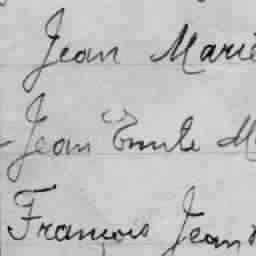 Jean Marie
Jean Emile M
François Jean